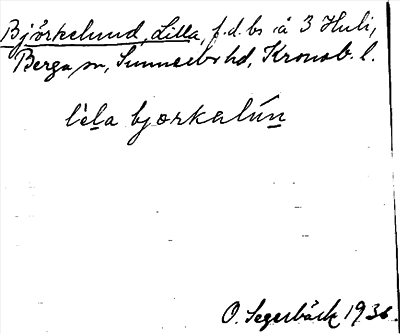 Björkelund, Lilla, f.d. bs å 3 Huli,
Berga sn, Sunnerbo hd, Kronob. l.
lɩ̀la bjørkəlún
O. Segerbäck 1936.